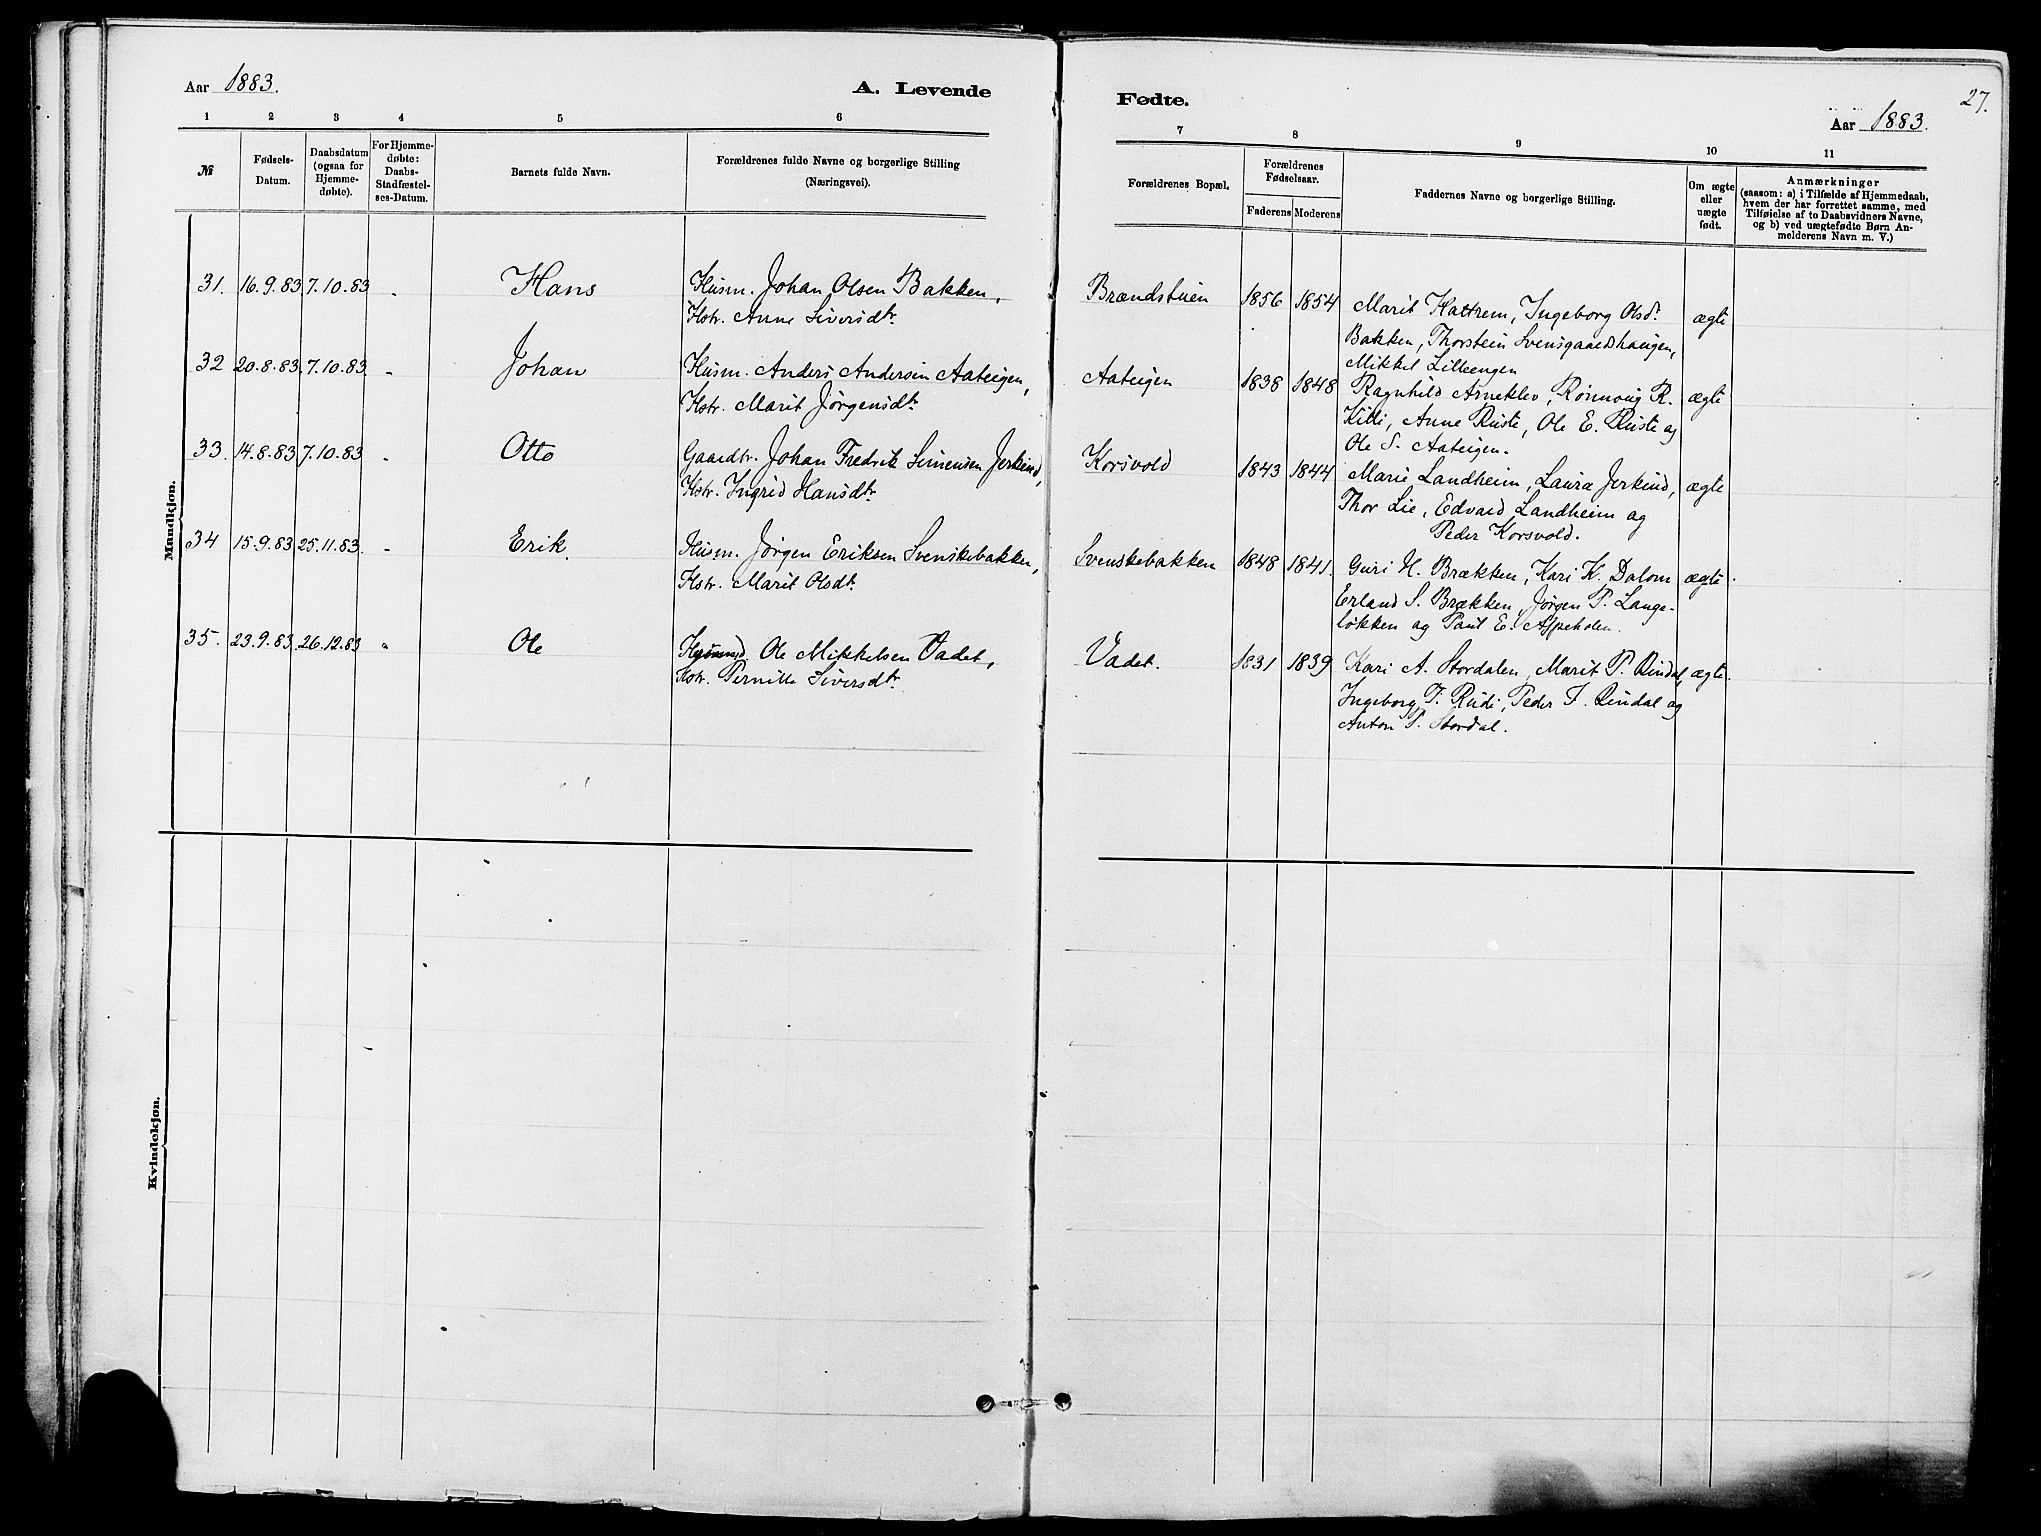 Aar 1883.
A. Levende
1 2 3 4 5 6
№
Fødsels-
Datum.
Daabsdatum
(ogsaa for
Hjemme-
døbte).
For Hjemme-
døbte:
Daabs-
Stadfæstel-
ses-Datum.
Barnets fulde Navn.
Forældrenes fulde Navne og borgerlige Stilling
(Næringsvei).
Mandkjøn.
31. 16.9.83 7.10.83 „ Hans Husm. Johan Olsen Bakken,
Kstr. Anne Siversdtr.
32 20.8.83. 7.10.83. „ Johan Husm. Anders Andersen Aateigen,
Kstr. Marit Jørgensdtr.
33. 14.8.83 7.10.83 „ Otto Gaardbr. Johan Fredrik Simensen Jerkind,
Kstr. Ingrid Hansdtr.
34 15.9.83 25.11.83. „ Erik. Husm. Jørgen Eriksen Svenskebakken,
Kstr. Marit Olsdtr.
35. 23.9.83. 26.12.83 „ Ole Ole Mikkelsen Vadet,
Kstr. Pernille Siversdtr.
Kvindekjøn.
27.
Fødte.
Aar 1883.
7 8 9 10 11
Forældrenes Bopæl.
Forældrenes
Fødselsaar.
Faderens Moderens
Faddernes Navne og borgerlige Stilling.
Om ægte
eller
uægte
født.
Anmærkninger
(saasom: a) i Tilfælde af Hjemmedaab,
hvem der har forrettet samme, med
Tilføielse af to Daabsvidners Navne,
og b) ved uægtefødte Børn An-
melderens Navn m. V.)
Brændstuen 1856 1854 Marit Kattrem, Ingeborg Olsdr. ægte
Bakken, Thorstein Svensgaardshaugen,
Mikkel Lilleengen
Aateigen 1838 1848 Ragnhild Arneklev, Rønnoug R. ægte
Kitti, Anne Ruste, Ole E. Ruste og
Ole S. Aateigen.
Korsvold 1843 1844 Marie Landheim, Laura Jerkind, ægte
Thor Lie, Edvard Landheim og
Peder Korsvold.
Svenskebakken 1848 1841. Guri H. Brækken, Kari K. Dalom ægte.
Erland S. Brækken, Jørgen P. Lange-
løkken og Paul E. Aspeholen.
Vadet. 1831 1839 Kari A. Stordalen, Marit P. Rindal, ægte.
Ingeborg T. Rudi, Peder F. Rindal og
Anton P. Stordal.